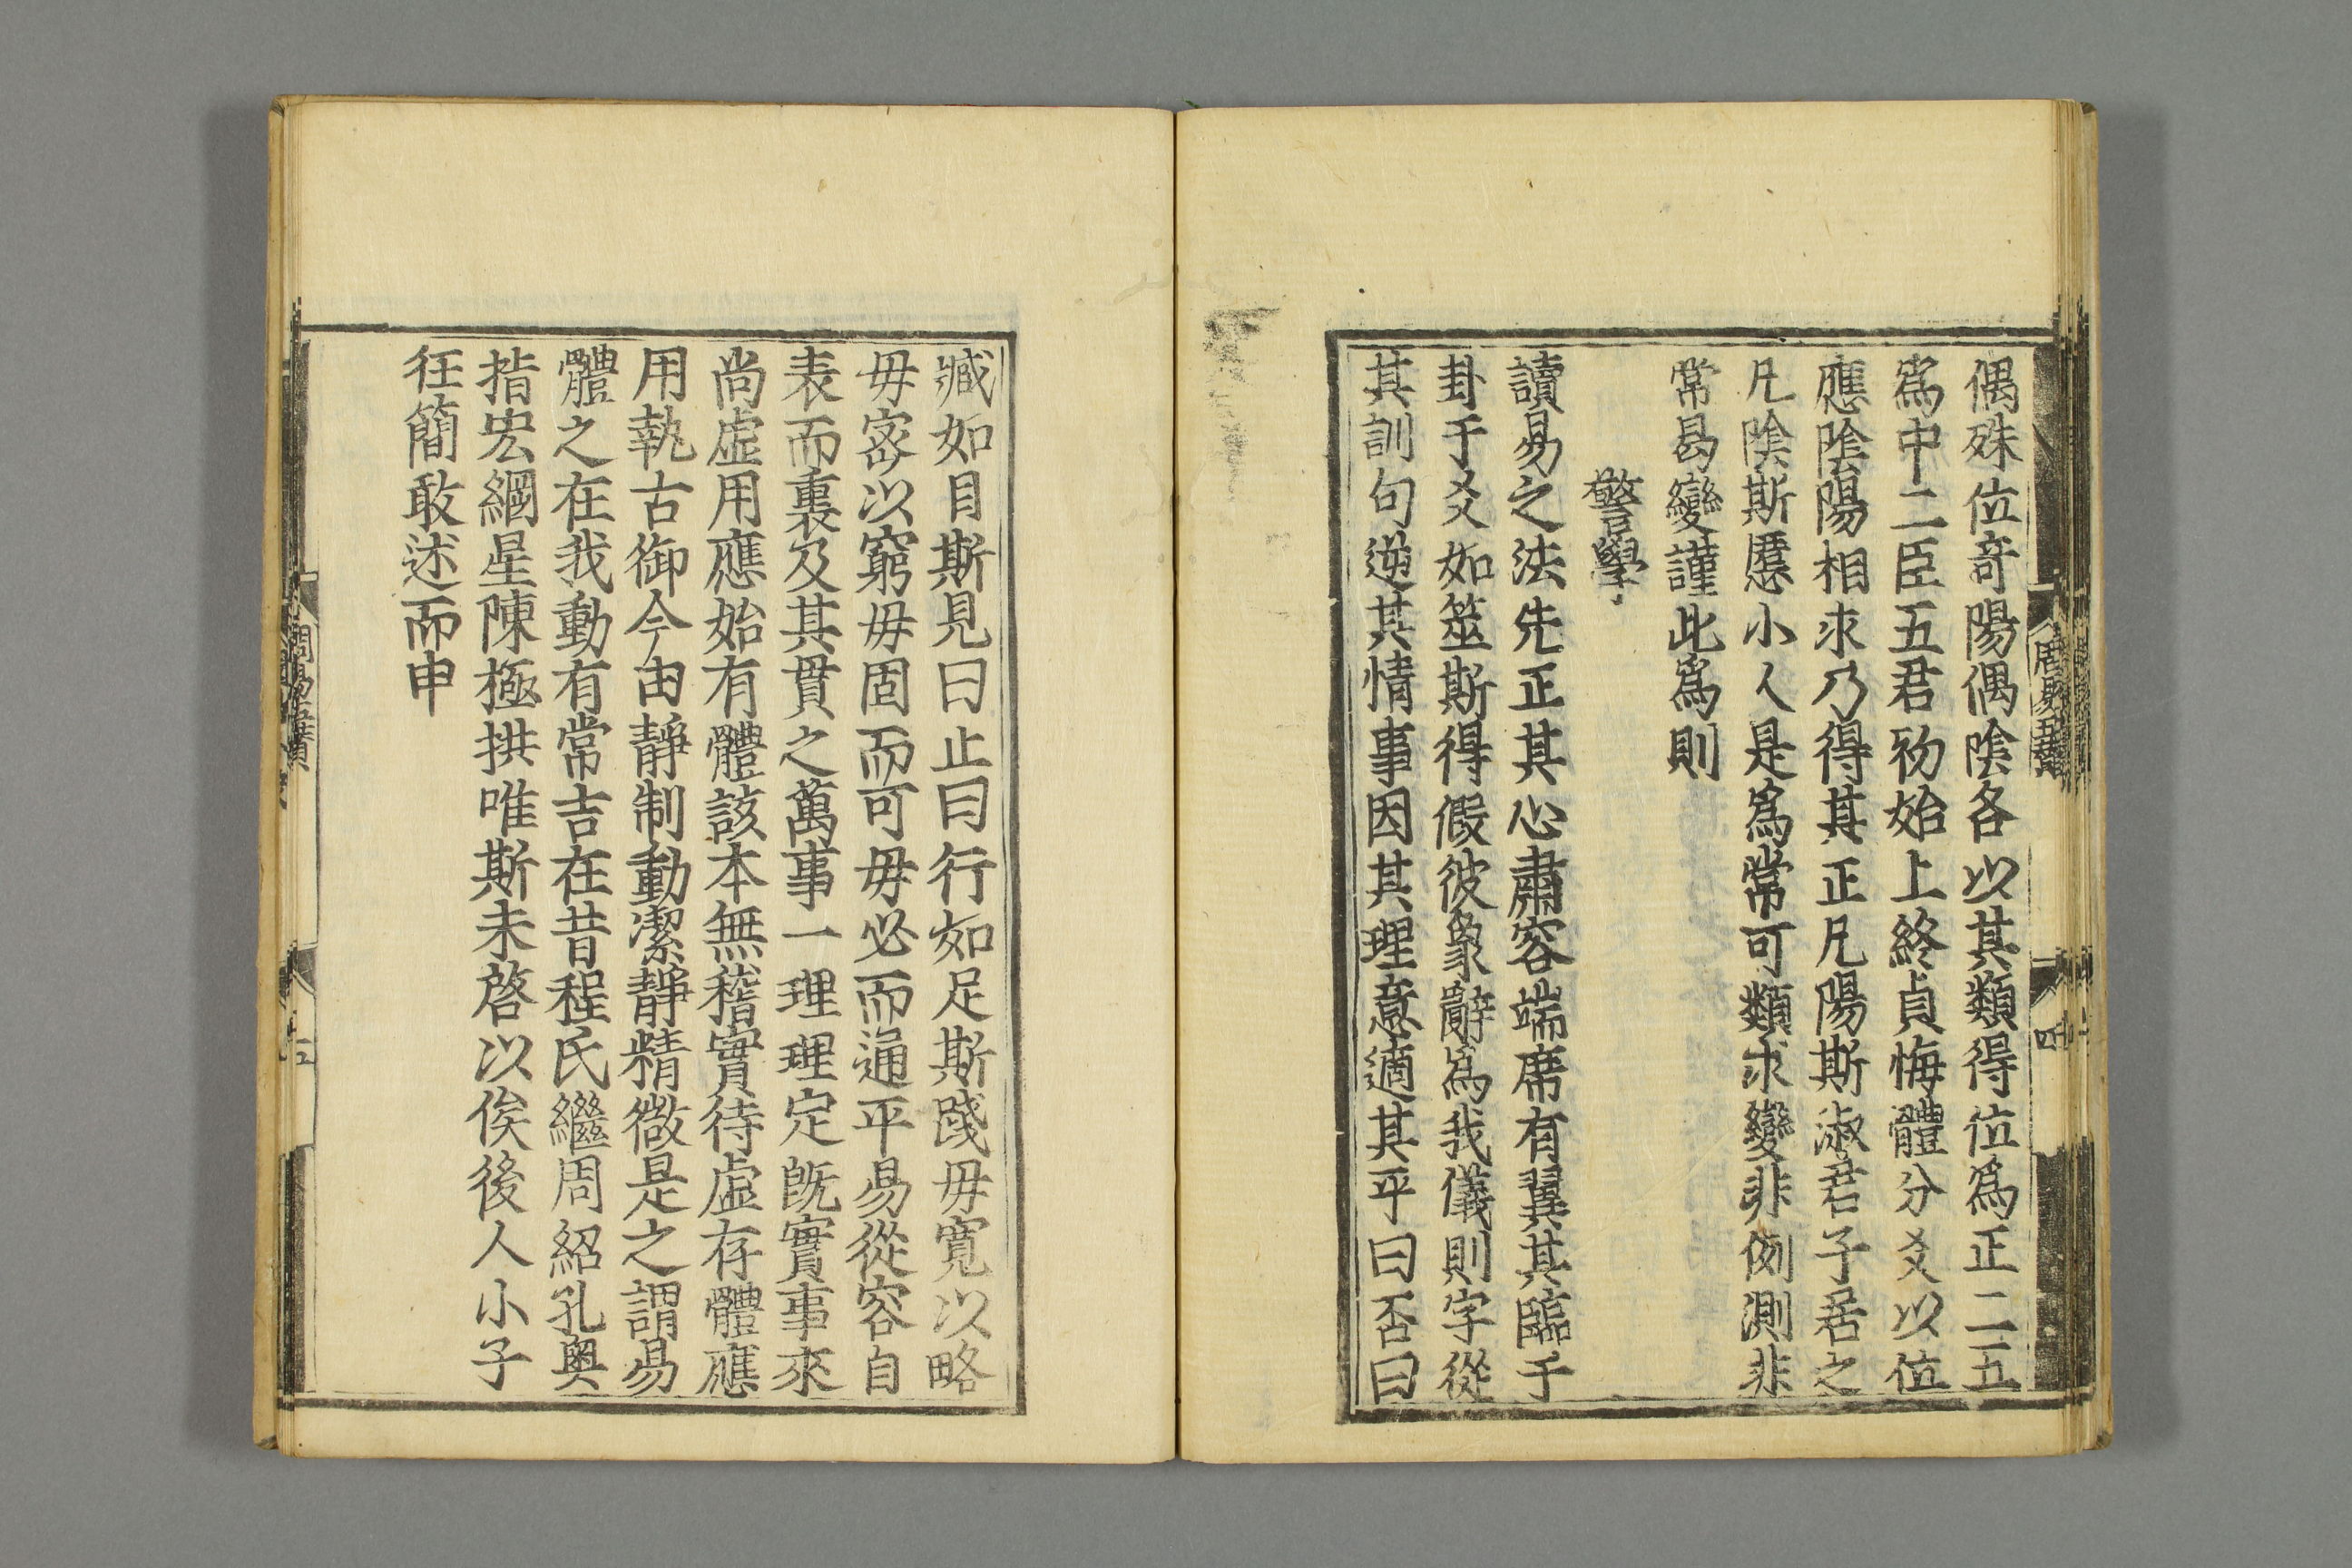 偶殊位竒陽偶陰各以其類得位爲正二五
爲中二臣五君初始上終貞悔體分爻以位
應陰陽相求乃得其正凡陽斯淑君子居之
凡陰斯慝小人是爲常可類求變非例測非
常曷變謹此爲則
警學
讀易之法先正其心肅容端席有翼其臨于
卦于爻如筮斯得假彼象辭爲我儀則字從
其訓句逆其情事因其理意適其平曰否曰
臧如目斯見曰止曰行如足斯踐毋寬以略
毋宻以窮毋固而可毋必而通平易從容自
表而裏及其貫之萬事一理理定旣實事來
尚虛用應始有體該本無稽實待虛存體應
用執古御今由靜制動潔靜精微是之謂易
體之在我動有常吉在昔程氏繼周紹孔奧
指宏綱星陳極拱唯斯未啓以俟後人小子
徃簡敢述而申